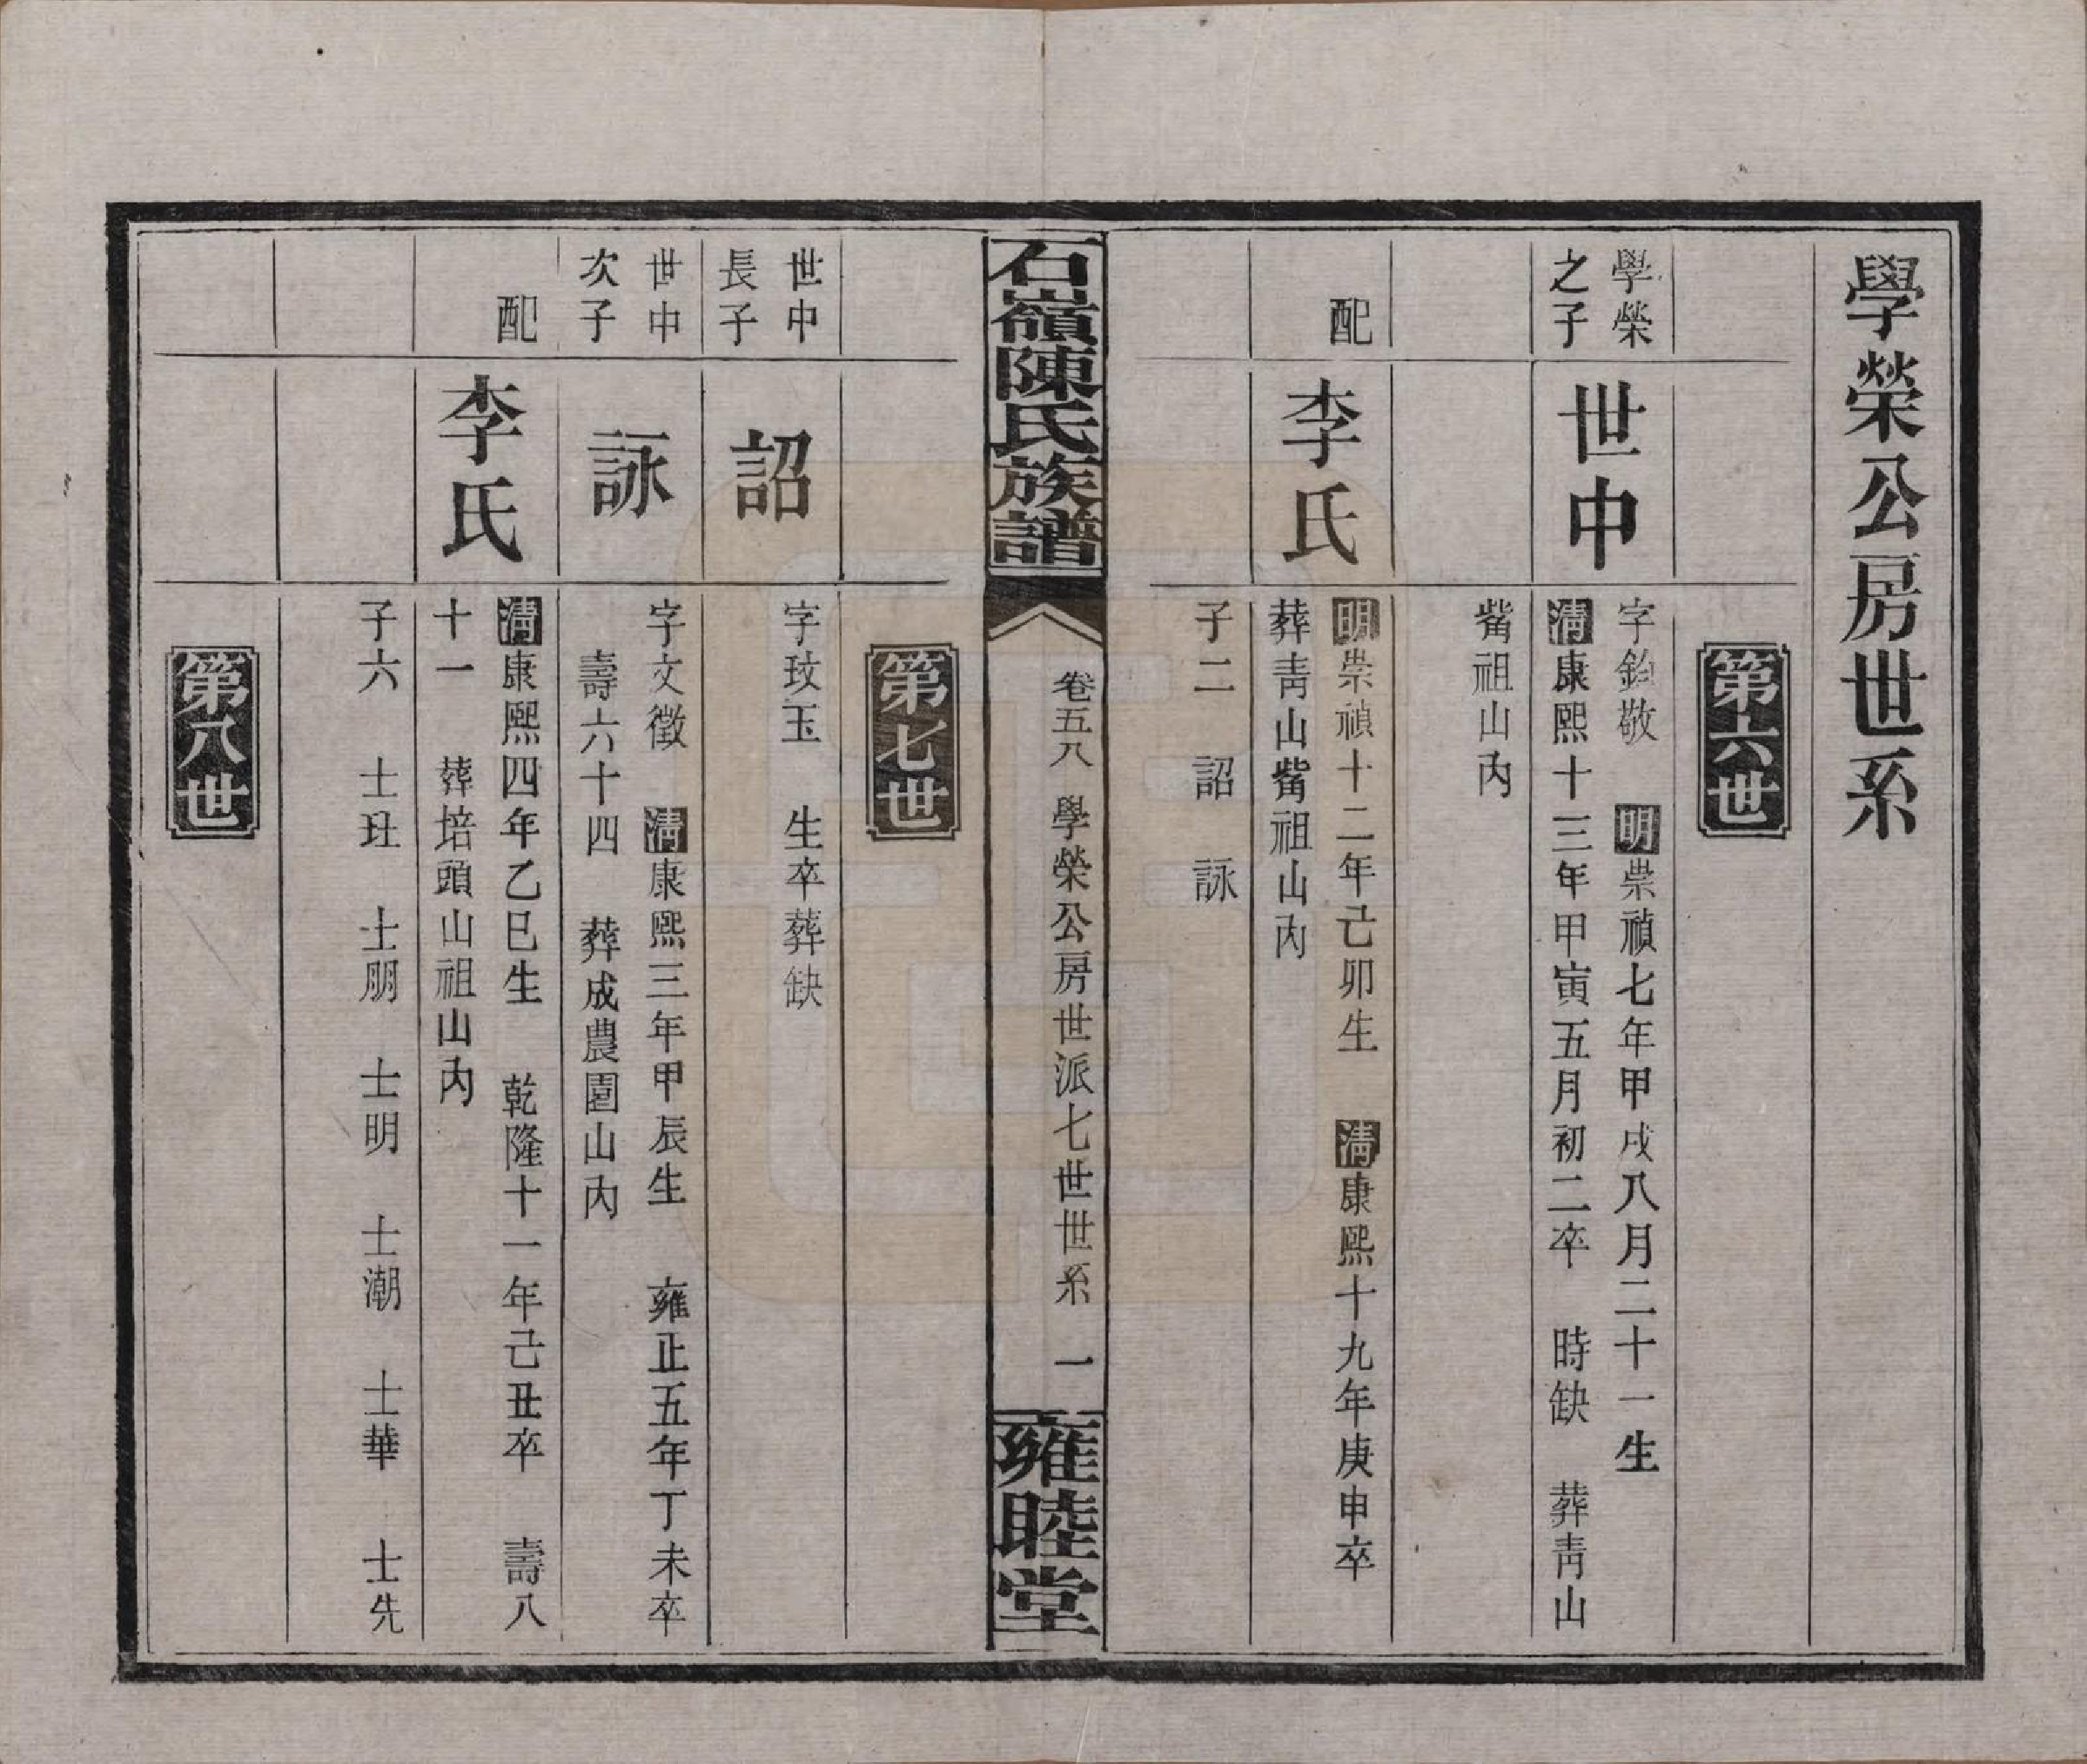 學榮公房世系
第六世
學榮
之子
世中
字鈞敬 明崇禎七年甲戌八月二十一生
清康熙十三年甲寅五月初二卒 時缺 葬青山
觜祖山內
配
李氏
明崇禎十二年己卯生 清康熙十九年庚申卒
葬青山觜祖山內
子二 詔 詠
石嶺陳氏族譜
卷五八 學榮公房世派七世世系 一
雍睦堂
第七世
世中
長子
詔
字玟玉 生卒葬缺
世中
次子
詠
字文徵 清康熙三年甲辰生 雍正五年丁未卒
壽六十四 葬成農園山內
配
李氏
清康熙四年乙巳生 乾隆十一年己丑卒 壽八
十一 葬培頭山祖山內
子六 士玨 士朋 士明 士潮 士華 士先
第八世